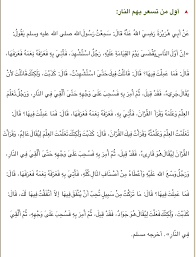 ▲ أول من تسعر بهم النار:
عَنْ أَبِي هُرَيْرَةَ رَضِيَ اللهُ عَنْهُ قَالَ: سَمِعْتُ رَسُولَ اللهِ صلى الله عليه وسلم يَقُولُ:
«إِنَّ أَوَّلَ النَّاسِ يُقْضَى يَوْمَ القِيَامَةِ عَلَيْهِ، رَجُلٌ اسْتُشْهِدَ، فَأُتِيَ بِهِ فَعَرَّفَهُ نِعَمَهُ فَعَرَفَهَا،
قَالَ: فَمَا عَمِلْتَ فِيهَا؟ قَالَ: قَاتَلْتُ فِيكَ حَتَّى اسْتُشْهِدْتُ، قَالَ: كَذَبْتَ، وَلَكِنَّكَ قَاتَلْتَ لأَنْ
يُقَالَ جَرِيءٌ، فَقَدْ قِيلَ، ثُمَّ أُمِرَ بِهِ فَسُحِبَ عَلَى وَجْهِهِ حَتَّى أُلْقِيَ فِي النَّارِ، وَرَجُلٌ تَعَلَّمَ
العِلْمَ وَعَلَّمَهُ وَقَرَأَ القُرْآنَ، فَأُتِيَ بِهِ، فَعَرَّفَهُ نِعَمَهُ فَعَرَفَهَا، قَالَ: فَمَا عَمِلْتَ فِيهَا؟ قَالَ:
تَعَلَّمْتُ العِلْمَ وَعَلَّمْتُهُ وَقَرَأْتُ فِيكَ القُرْآنَ، قَالَ: كَذَبْتَ، وَلَكِنَّكَ تَعَلَّمْتَ العِلْمَ لِيُقَالَ عَالِمٌ، وَقَرَأْتَ
القُرْآنَ لِيُقَالَ هُوَ قَارِئٌ، فَقَدْ قِيلَ، ثُمَّ أُمِرَ بِهِ فَسُحِبَ عَلَى وَجْهِهِ حَتَّى أُلْقِيَ فِي النَّارِ،
وَرَجُلٌ وَسَّعَ اللهُ عَلَيْهِ وَأَعْطَاهُ مِنْ أَصْنَافِ المَالِ كُلِّهِ، فَأُتِيَ بِهِ فَعَرَّفَهُ نِعَمَهُ فَعَرَفَهَا، قَالَ:
فَمَا عَمِلْتَ فِيهَا؟ قَالَ: مَا تَرَكْتُ مِنْ سَبِيلٍ تُحِبُّ أَنْ يُنْفَقَ فِيهَا إِلَّا أَنْفَقْتُ فِيهَا لَكَ، قَالَ:
كَذَبْتَ، وَلَكِنَّكَ فَعَلْتَ لِيُقَالَ هُوَ جَوَادٌ، فَقَدْ قِيلَ، ثُمَّ أُمِرَ بِهِ فَسُحِبَ عَلَى وَجْهِهِ، ثُمَّ أُلْقِيَ
فِي النَّارِ». أخرجه مسلم.